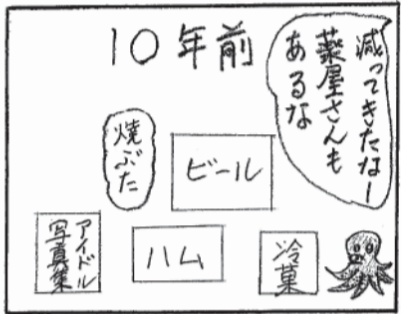 10年前
減ってきたなー
薬屋さんも
あるな
焼ぶた
ビール
アイドル
写真集
ハム
冷菓